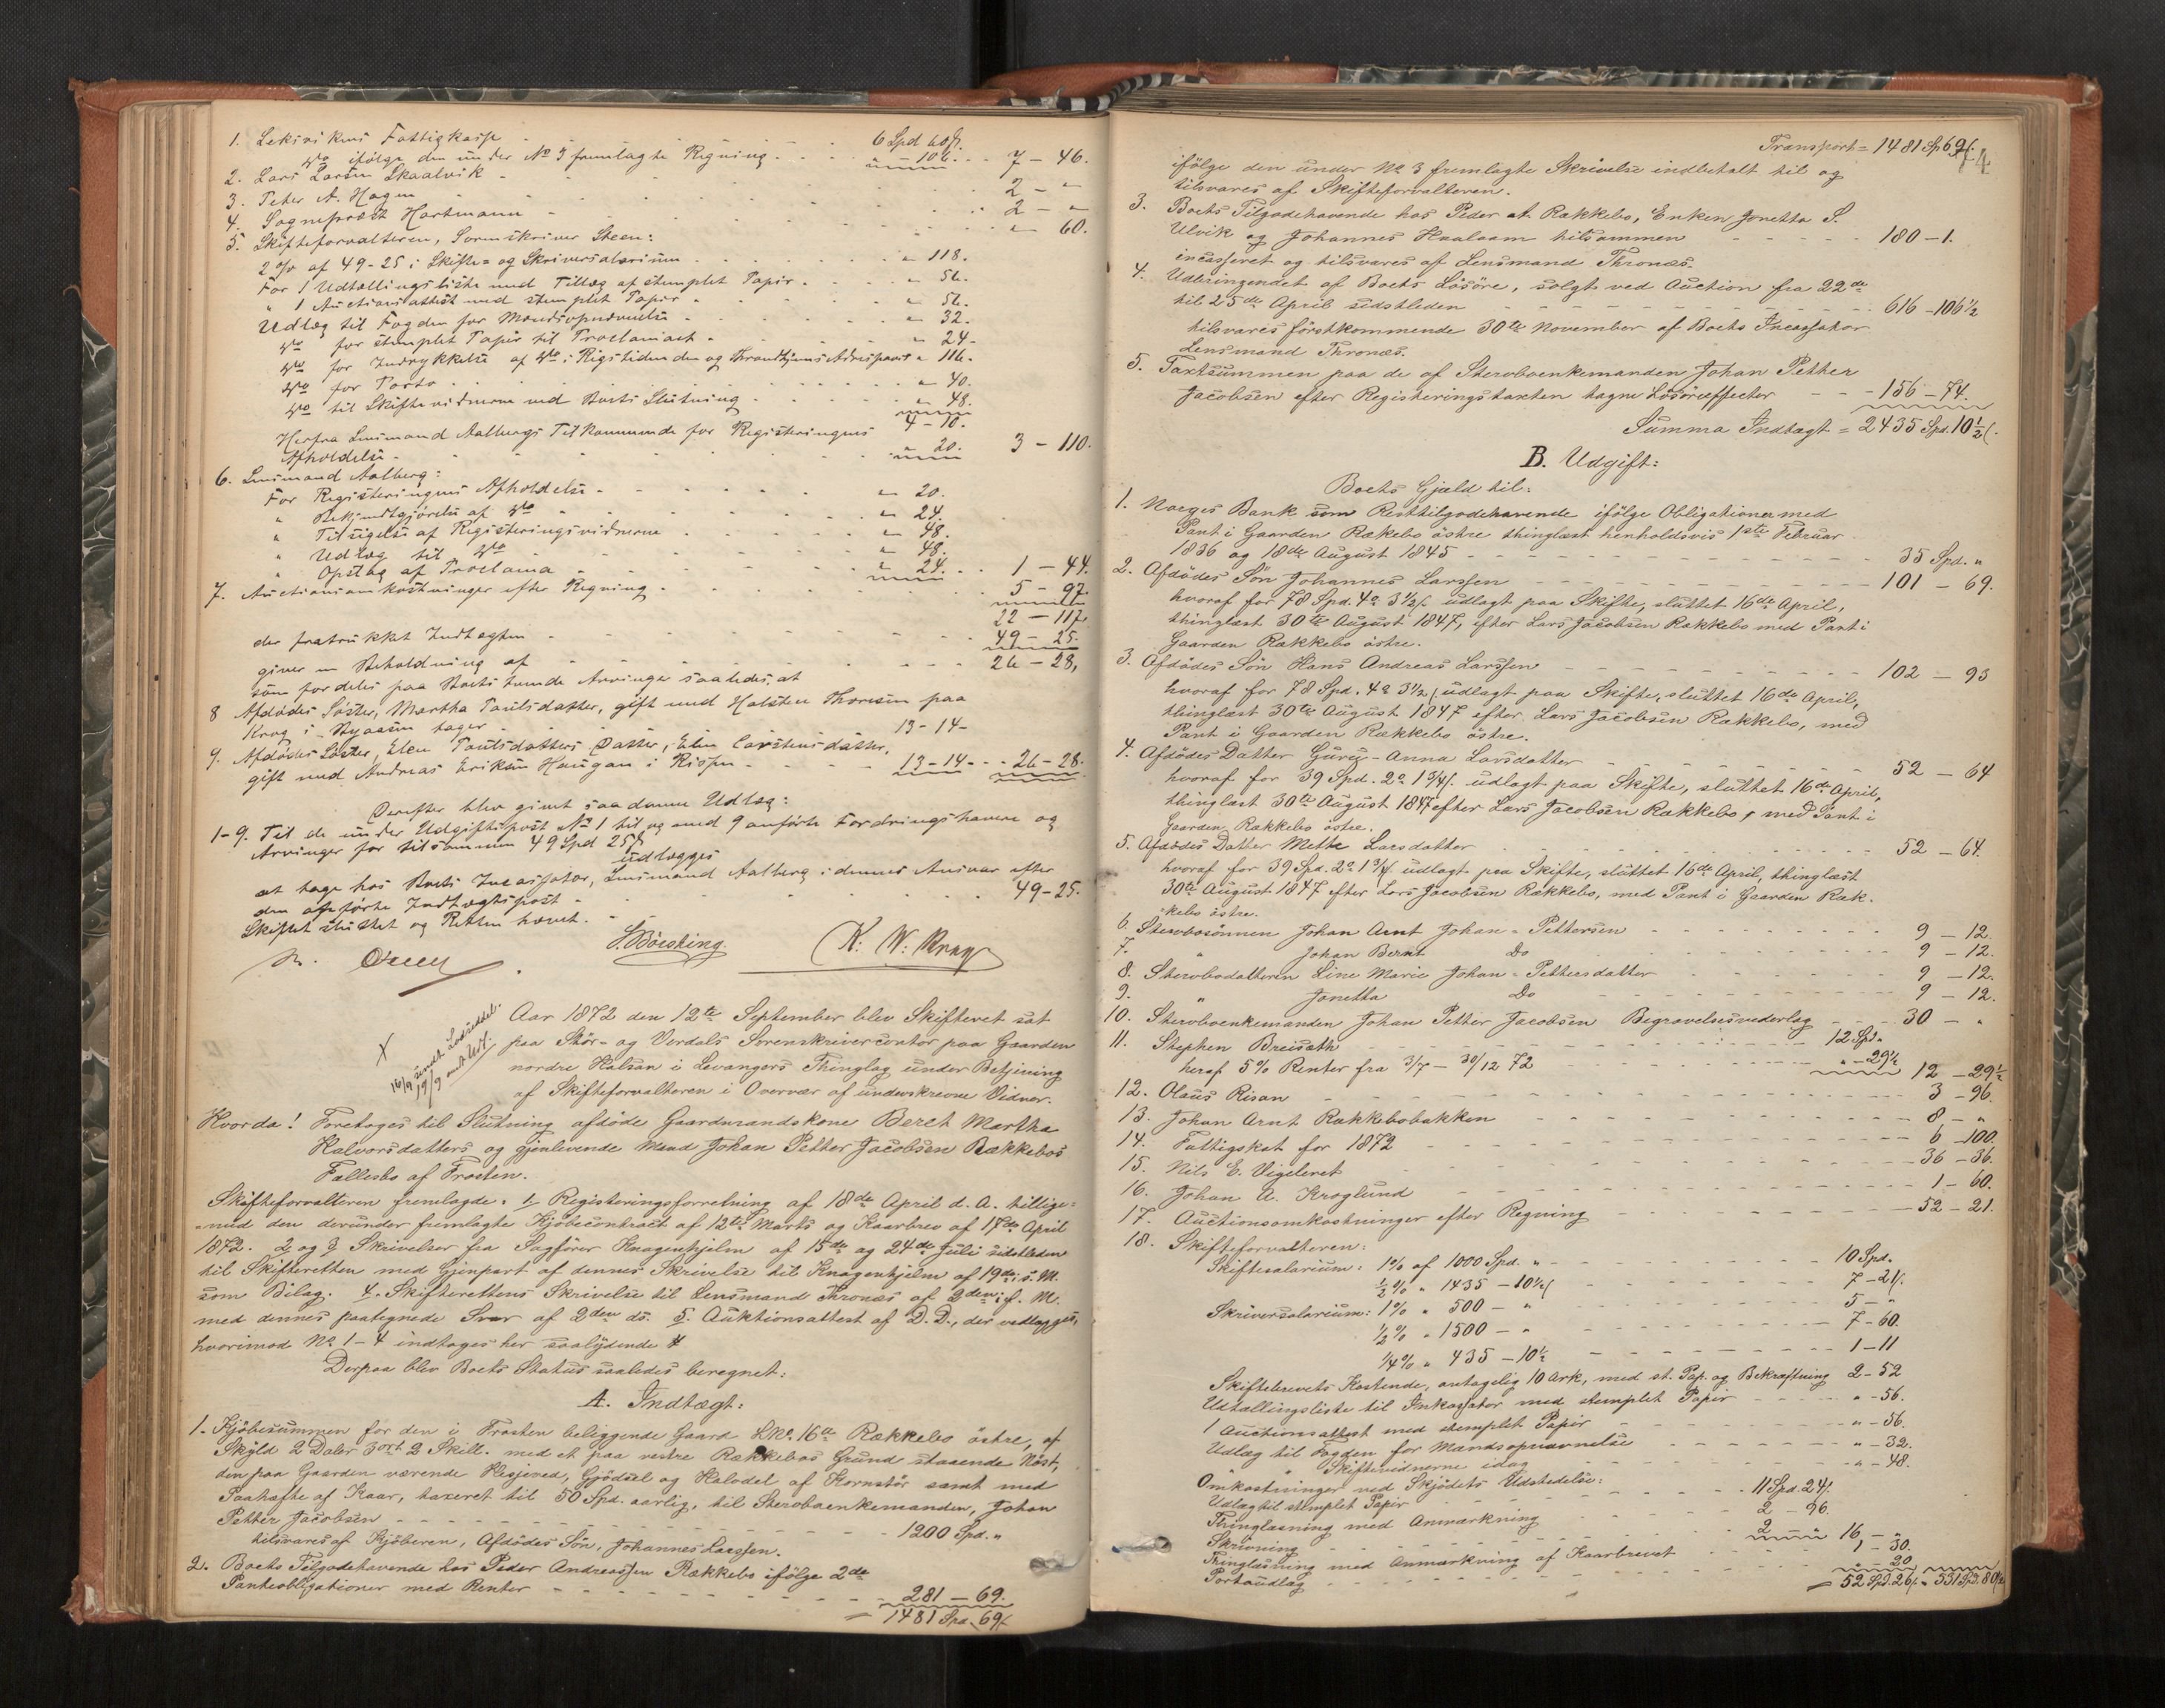 1. Leksvikens Fattigkasse - - - 6 Spd 60 ſ.
Do ifølge den under No 3 fremlagte Regning - - - " - 106. - - 7 - 46.
2. Lars Larsen Skaalvik - - - 2 - "
3. Peter A. Hagen - - - 2 - "
4. Sognepræst Hartmann - - - " 60.
5. Skifteforvalteren, Sorenskriver Steen:
2 % af 49-25 i Skifte- og Skriversalarium - - - " 118.
For 1 Udtællingsliste med Tillæg af stemplet Papir - - " 56.
" 1 Auctionsattest med stemplet Papir - - - " 56.
Udlæg til Fogden for Mændsopnævnelse - - - " 32.
Do for stemplet Papir til Proclamaet - - - " 24.
Do for Indrykkelse af Do i Rigstidenden og Throndhjems Adresseavis " 116.
Do for Porto - - - " 40.
Do til Skiftevidnerne ved Boets Slutning - - - " 48.
4 - 10.
Herfra Lensmand Aalbergs Tilkommende for Registeringens
Afholdelse - - - " 20. 3 - 110.
6. Lensmand Aalberg:
For Registeringens Afholdelse - - - " 20.
" Bekjendtgjørelse af Do - - - " 24.
" Tilsigelse af Registeringsvidnerne - - - " 48.
" Udlæg til Do - - - " 48.
" Opslag af Proclama - - - " 24. - - 1 - 44.
7. Auctionsomkostninger efter Regning - - - 5 - 97.
22 - 117.
der fratrukket Indtægten - - - 49 - 25.
giver en Beholdning af - - - 26 - 28,
som fordeles paa Boets tvende Arvinger saaledes, at
8 Afdødes Søster, Martha Paulsdatter, gift med Halsten Thoresen paa
Krog i Byaasen tager - - - 13-14-
9. Afdødes Søster, Elen Paulsdatters Datter, Elen Carstensdatter,
gift med Andreas Eriksen Haugan i Rissen - - - 13-14 - - 26-28.
Derefter blev givet saadanne Udlæg:
1-9. Til de under Udgiftspost No 1 til og med 9 anførte Fordringshavere og
Arvinger for tilsammen 49 Spd 25 ſ
udlægges
at tage hos Boets Incassator, Lensmand Aalberg i dennes Ansvar efter
den anførte Indtægtspost - - - 49-25.
Skiftet sluttet og Retten hævet. -
S. Börsking K: W: Krag
X
Aar 1872 den 12te September blev Skifteret sat
paa Stør- og Verdals Sorenskrivercontor paa Gaarden
nordre Halsan i Levangers Thinglag under Betjening
af Skifteforvalteren i Overvær af underskrevne Vidner.
Hvorda! Foretoges til Slutning afdøde Gaardmandskone Beret Martha
Halvorsdatters og gjenlevende Mand Johan Petter Jacobsen Rækkebos
Fællesbo af Frosten.
Skifteforvalteren fremlagde: 1, Registeringsforretning af 18de April d. A. tillige-
-med den derunder fremlagte Kjøbecontract af 12te Marts og Kaarbrev af 17de April
1872. 2 og 3 Skrivelser fra Sagfører Knagenhjelm af 15de og 24de Juli sidstleden
til Skifteretten med Gjenpart af dennes Skrivelse til Knagenhjelm af 19de s. M.
som Bilag. 4. Skifterettens Skrivelse til Lensmand Thronæs af 2den f. M.
med dennes paategnede Svar af 2den ds. 5. Auktionsattest af D. D., der vedlægges,
hvorimod No 1-4 indtages her saalydende #
Derpaa blev Boets Status saaledes beregnet:
A. Indtægt:
1. Kjøbesummen for den i Frosten beliggende Gaard LNo. 16a Rækkebo østre, af
Skyld 2 Daler 3 ort 2 Skill. med et paa vestre Rækkebos Grund staaende Nøst,
den paa Gaarden værende Hesjeved, Gjødsel og Halvdel af Kornstør samt med
Paahæfte af Kaar, taxeret til 50 Spd. aarlig, til Stervboenkemanden, Johan
Petter Jacobsen - - - 1200 Spd. "
tilsvares af Kjøberen, Afdødes Søn, Johannes Larssen.
2. Boets Tilgodehavende hos Peder Andreassen Rækkebo ifølge 2de
Panteobligationer med Renter - - - 281 - 69.
= 1481 Spd. 69 ſ
Transport = 1481 Sp 69 ſ.
74
ifølge den under No 3 fremlagte Skrivelse indbetalt til og
tilsvares af Skifteforvalteren.
3. Boets Tilgodehavende hos Peder A. Rækkebo, Enken Jonetta S.
Ulvik og Johannes Haalaam tilsammen - - - 180 - 1.
incasseret og tilsvares af Lensmand Thronæs.
4. Udbringendet af Boets Løsøre, solgt ved Auction fra 22de
til 25de April sidstleden - - - 616 - 106½
tilsvares førstkommende 30te November af Boets Incassator
Lensmand Thronæs.
5. Taxtsummen paa de af Stervboenkemanden Johan Petter
Jacobsen efter Registeringstaxten tagne Løsøreeffecter - - 156 - 74.
Summa Indtægt = 2435 Spd. 10½ ſ.
B. Udgift:
Boets Gjæld til:
1. Norges Bank som Resttilgodehavende ifølge Obligationer med
Pant i Gaarden Rækebo østre thinglæst henholdsvis 1ste Februar
1836 og 18de August 1845 - - - 35 Spd. "
2. Afdødes Søn Johannes Larssen - - - 101 - 69.
hvoraf for 78 Spd. 4o 3½ ſ. udlagt paa Skifte, sluttet 16de April,
thinglæst 30te August 1847, efter Lars Jacobsen Rækkebo med Pant i
Gaarden Rækkebo østre.
3. Afdødes Søn Hans Andreas Larssen - - - 102 - 93
hvoraf for 78 Spd. 4o 3½ ſ. udlagt paa Skifte, sluttet 16de April,
thinglæst 30te August 1847 efter Lars Jacobsen Rækkebo, med
Pant i Gaarden Rækkebo østre.
4. Afdødes Datter Guru-Anna Larsdatter - - - 52 - 64
hvoraf for 39 Spd. 2o 1¾ ſ. udlagt paa Skifte, sluttet 16de April,
thinglæst 30te August 1847 efter Lars Jacobsen Rækkebo, med Pant i
Gaarden Rækkebo østre.
5. Afdødes Datter Mette Larsdatter - - - 52 - 64.
hvoraf for 39 Spd. 2o 1¾ ſ udlagt paa Skifte, sluttet 16de April, thinglæst
30te August 1847 efter Lars Jacobsen Rækkebo, med Pant i Gaarden Ræk-
-kebo østre.
6. Stervbosønnen Johan Arnt Johan-Pettersen - - - 9 - 12.
7. " Johan Bernt Do - - - 9 - 12.
8. Stervbodatteren Line Marie Johan-Pettersdatter - - - 9 - 12.
9. " Jonetta Do - - - 9 - 12.
10. Stervboenkemanden Johan Petter Jacobsen Begravelsesvederlag - - 30 - "
11. Stephen Breisæth - - - 12 Spd. "
heraf 5% Renter fra 3/7 - 30/12 72 - - - " - 29½ 12 - 29½
12. Olaus Risan - - - 3 - 96.
13. Johan Arnt Rækkebobakken - - - 8 - "
14. Fattigskat for 1872 - - - 6 - 100.
15. Nils E. Vigeleret - - - 36 - 36.
16. Johan A. Kroglund - - - 1 - 60.
17. Auctionsomkostninger efter Regning - - - 52 - 21.
18. Skifteforvalteren:
Skiftesalarium: 1% af 1000 Spd. " - - - 10 Spd. "
½% " 1435 - 10½ ſ - - - 7 - 21 ſ.
Skriversalarium: 1% " 500 - " - - - 5 - "
½% " 1500 - " - - - 7 - 60.
¼% " 435 - 10½ - - - 1 - 11
Skiftebrevets Kostende, antagelig 10 Ark, med st. Pap. og Bekræftning 2 - 52
Udtællingsliste til Inkassator med stemplet Papir - - - " - 56.
1 Auctionsattest med stemplet Papir - - - " - 56.
Udlæg til Fogden for Mændsopnævnelse - - - " - 32.
" " Skiftevidnerne idag - - - " - 48.
Omkostninger ved Skjødets Udstedelse:
Udlæg til stemplet Papir - - - 11 Spd. 24 ſ.
Thinglæsning med Anmærkning - - - 2 - 96.
Skrivning - - - 2 - " 16 - "
Thinglæsning med Anmærkning af Kaarbrevet - - - 1 - 30.
Portoudlæg - - - " - 20
= 52 Spd. 26 ſ. = 531 Spd. 80½